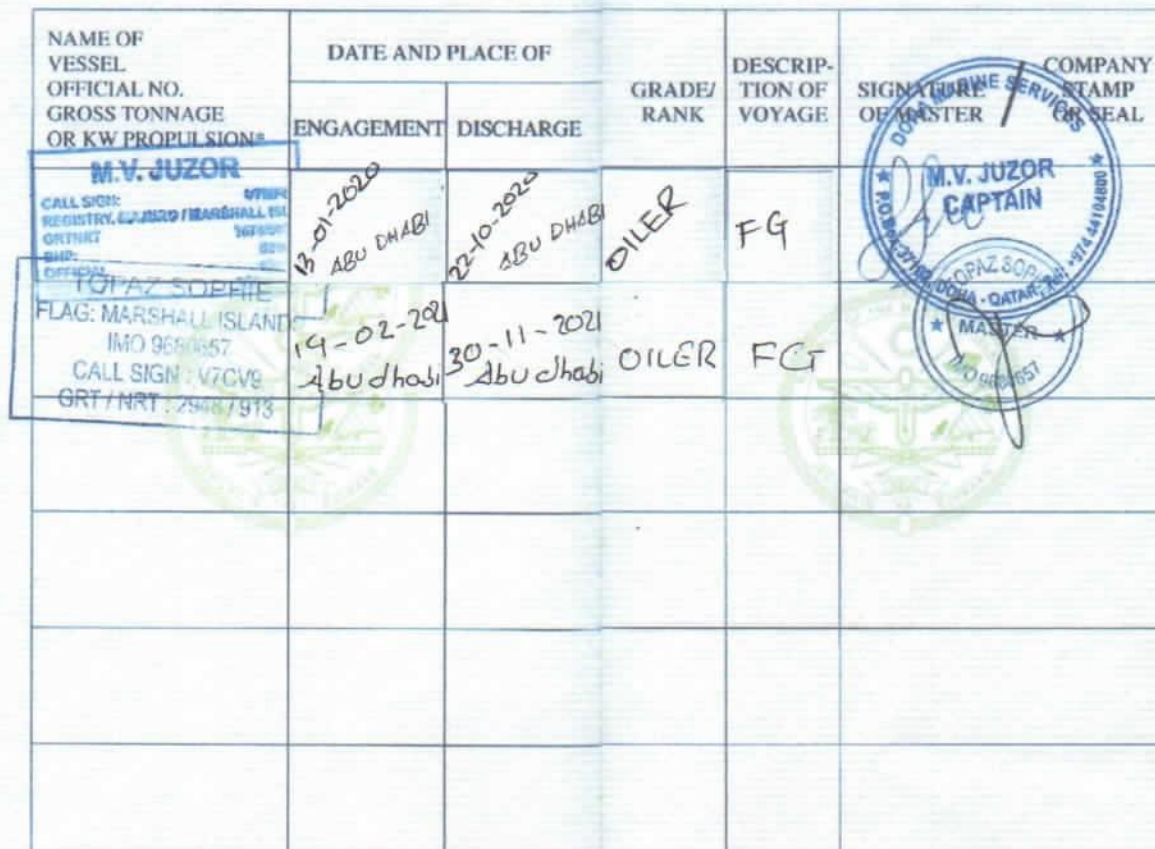 NAME OF
VESSEL
OFFICIAL NO.
GROSS TONNAGE
OR KW PROPULSION*
DATE AND PLACE OF
ENGAGEMENT
DISCHARGE
GRADE/
RANK
DESCRIP-
TION OF
VOYAGE
SIGNATURE
OF MASTER
COMPANY
STAMP
OR SEAL
M.V. JUZOR
CALL SIGN:
REGISTRY. / MARSHALL
GRT/NRT
BHP:
OFFICIAL
13-01-2020
ABU DHABI
22-10-2020
ABU DHABI
OILER
FG
DOHA MARINE SERVICES
M.V. JUZOR
CAPTAIN
DOHA - QATAR
TOPAZ SOPHIE
FLAG: MARSHALL ISLANDS
IMO 9680657
CALL SIGN : V7CV9
GRT / NRT : 2948 / 913
19-02-2021
Abu dhabi
30-11-2021
Abu dhabi
OILER
FG
MASTER
IMO 9680657